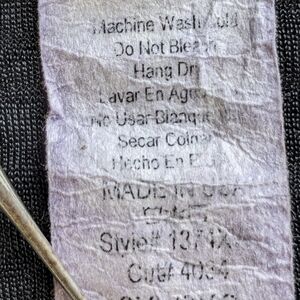 Machine Wash Cold
Do Not Bleach
Hang Dry
Lavar En Agua
No Usar Blanque
Secar Colga
Hecho En E
MADE IN USA
Style# 1371X
Cut# 4034